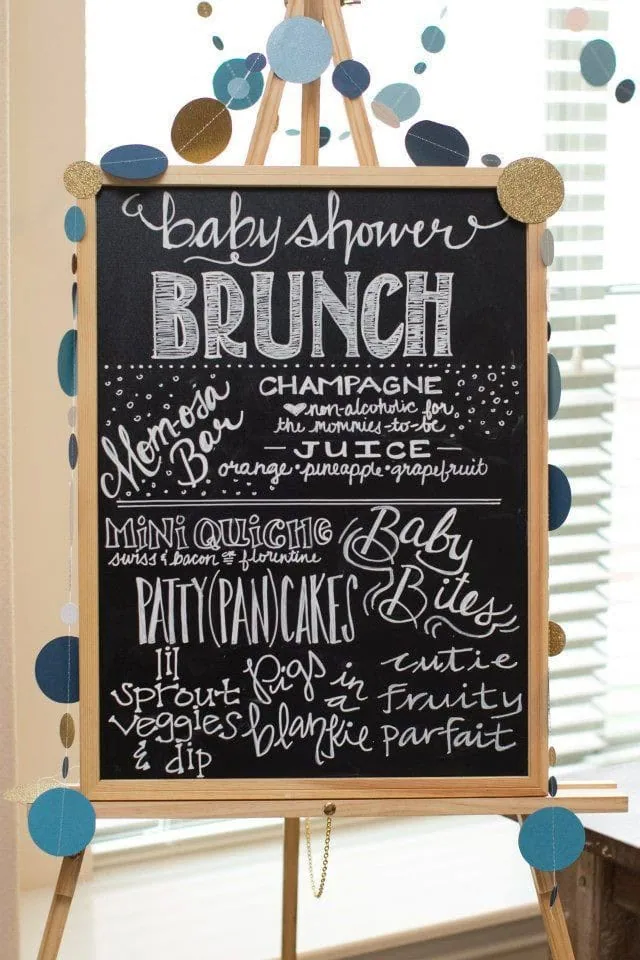 baby shower
BRUNCH
Mom-osa
Bar
CHAMPAGNE
non-alcoholic for
the mommies-to-be
— JUICE —
orange • pineapple • grapefruit
MiNi QUiCHE
swiss & bacon or florentine
Baby
Bites
PATTY(PAN)CAKES
lil
sprout
veggies
& dip
pigs in
a
blankie
cutie
fruity
parfait